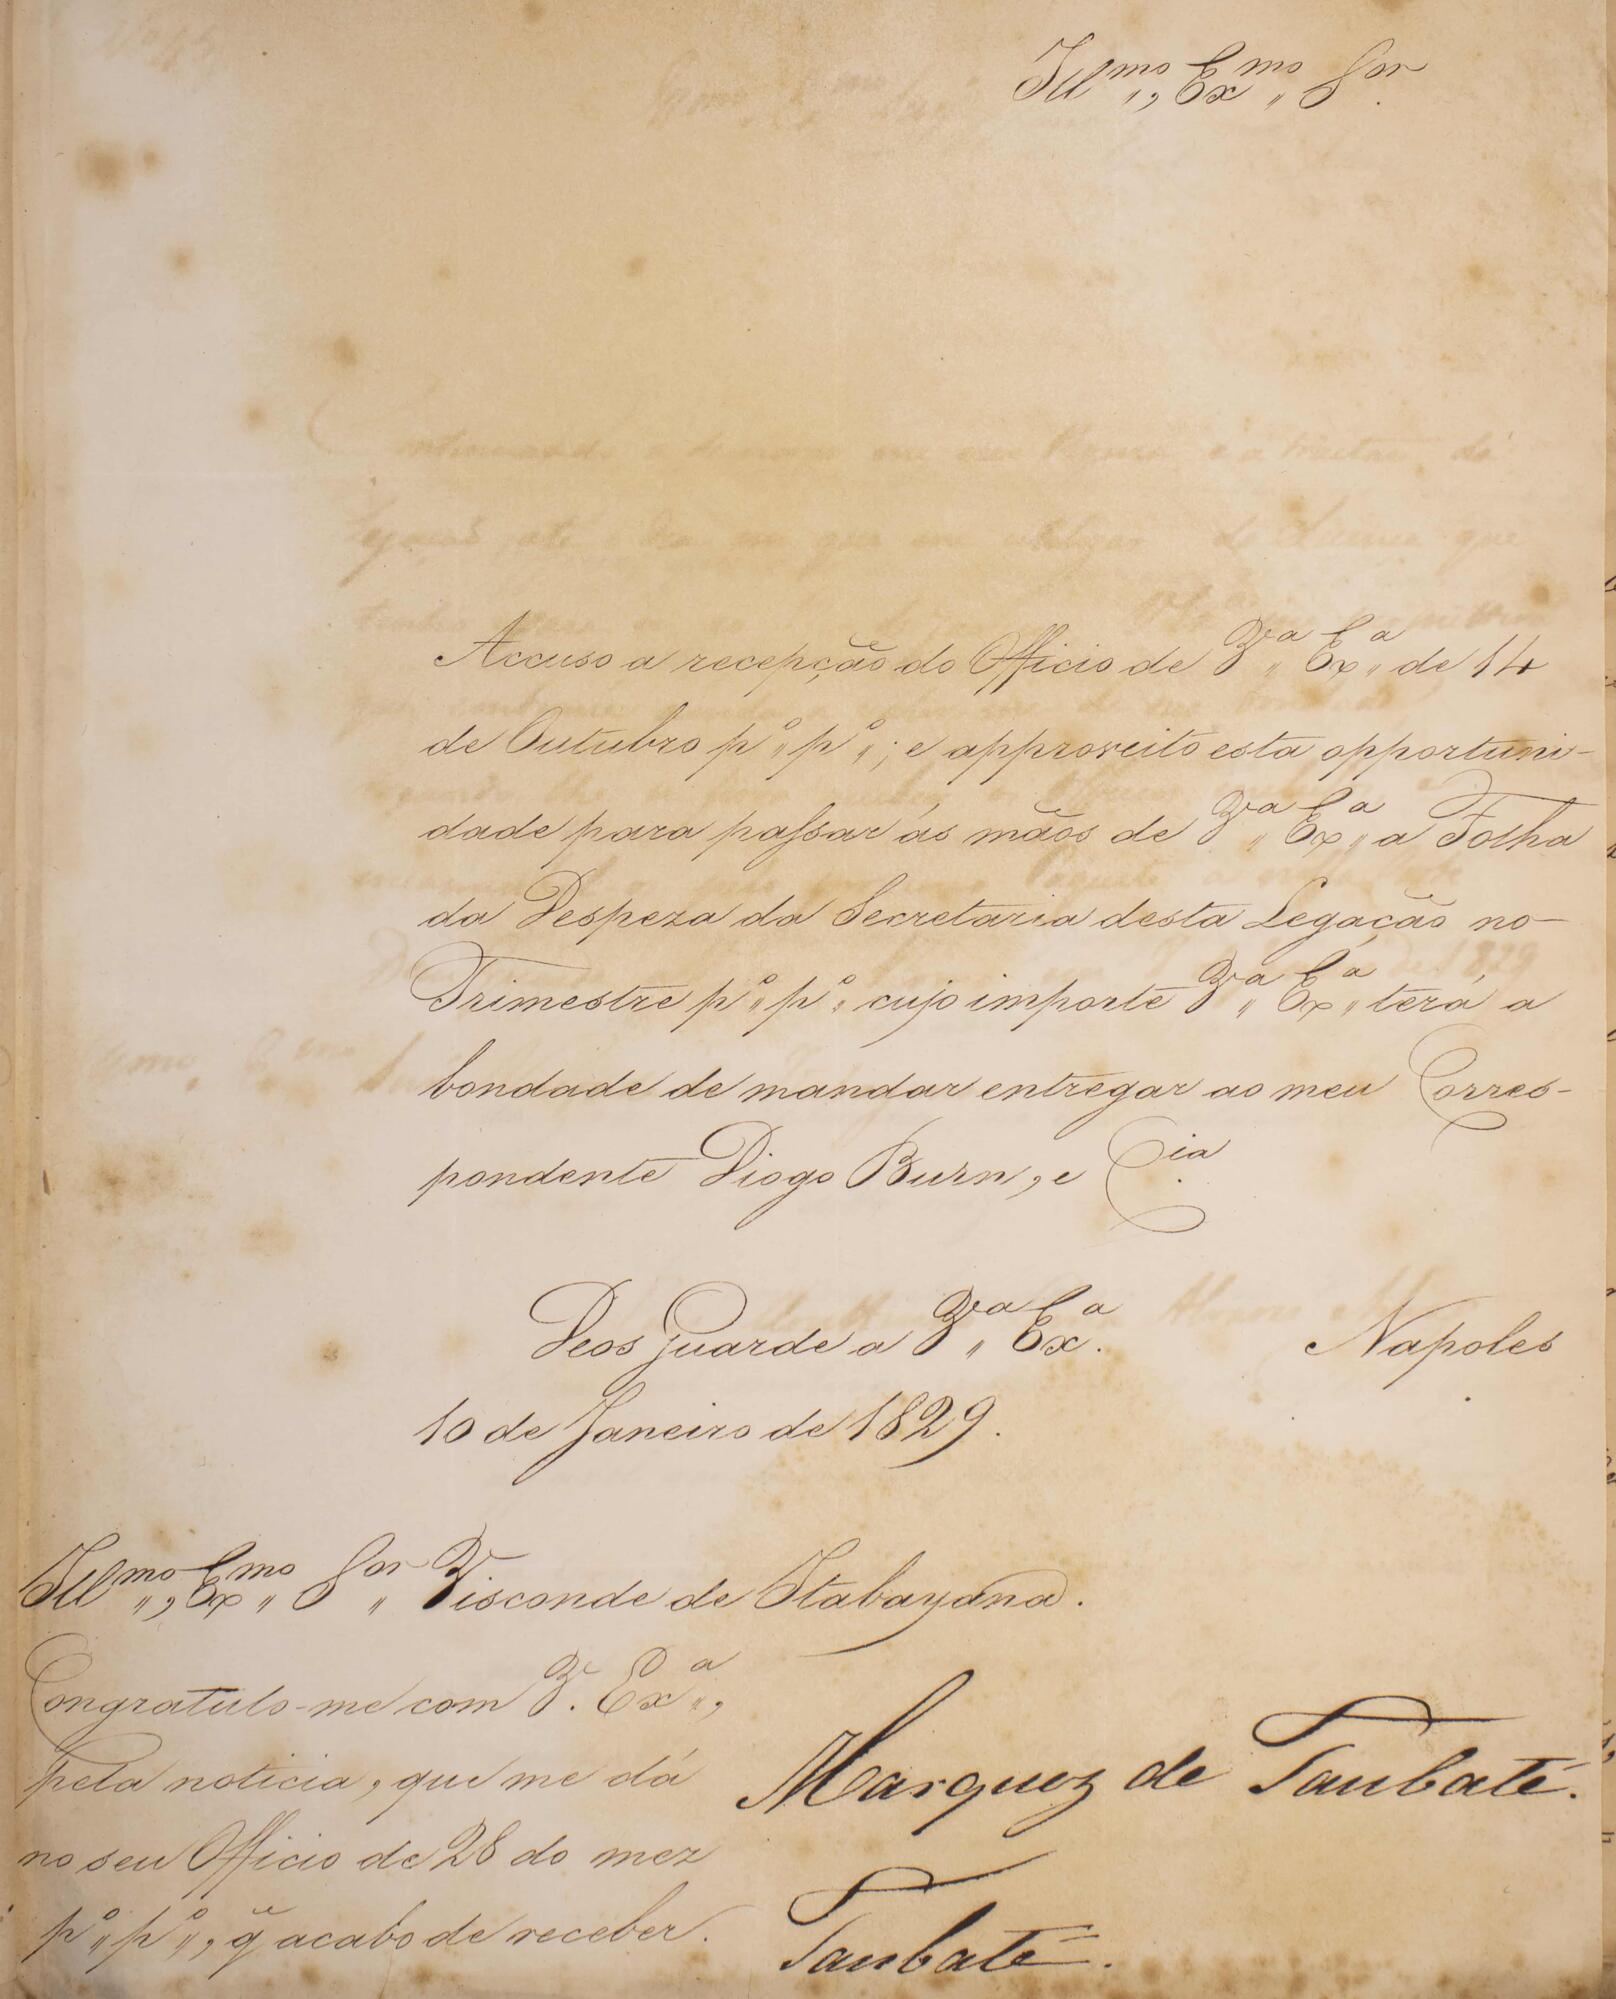 Ill.mo, Ex.mo Sor.
Accuso a recepção do Officio de Va. Exa. de 14
de Outubro po. po.; e approveito esta opportuni-
dade para passar ás mãos de Va. Exa. a Folha
da Despeza da Secretaria desta Legação no
Trimestre po. po. cujo importe Va. Exa. terá a
bondade de mandar entregar ao meu Corres-
pondente Diogo Burn, e Cia.
Deos guarde a Va. Exa. Napoles
10 de Janeiro de 1829.
Ill.mo, Ex.mo Sor. Visconde de Itabayana.
Congratulo-me com V. Exa.,
pela noticia, que me dá
no seu Officio de 28 do mez
po. po., q̃ acabo de receber.
Marquez de Taubaté.
Taubaté.